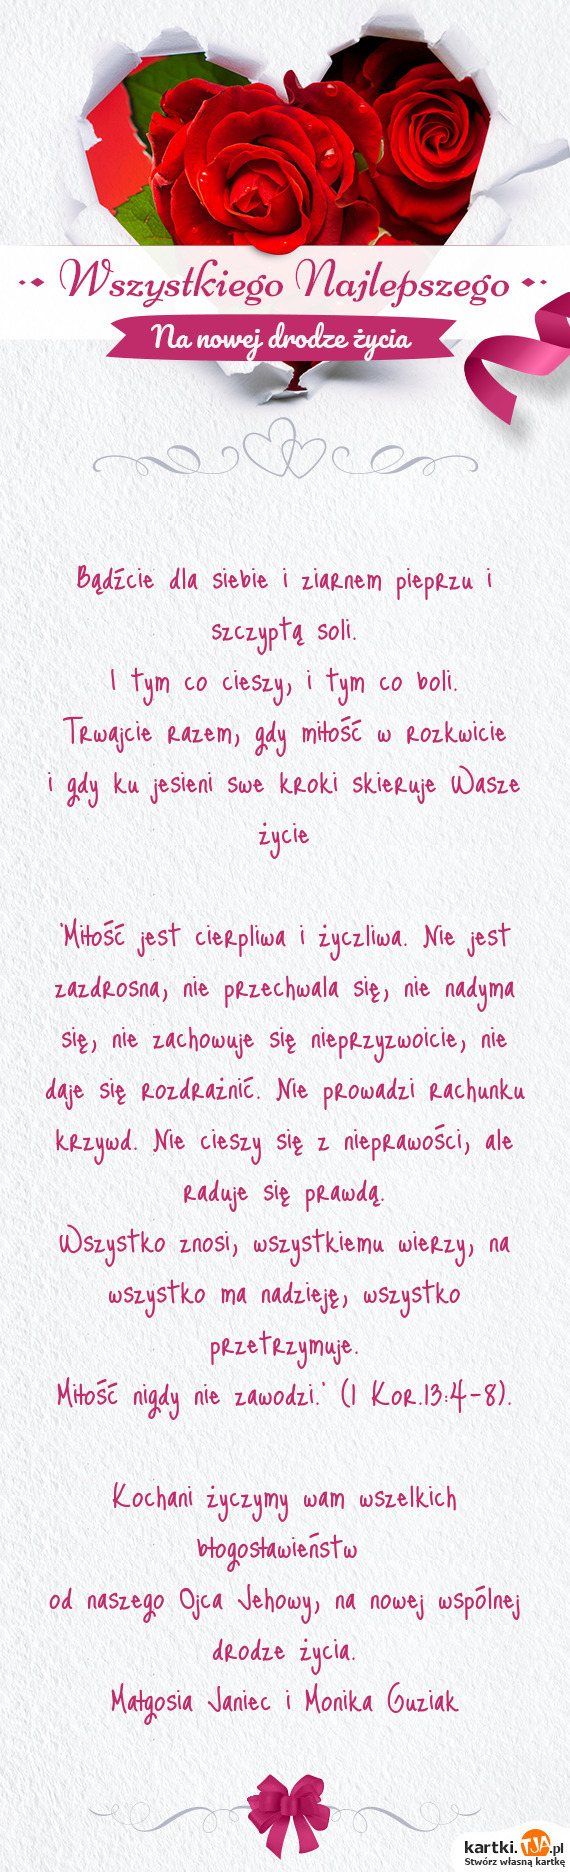 Wszystkiego Najlepszego
Na nowej drodze życia
Bądźcie dla siebie i ziarnem pieprzu i
szczyptą soli.
I tym co cieszy, i tym co boli.
Trwajcie razem, gdy miłość w rozkwicie
i gdy ku jesieni swe kroki skieruje Wasze
życie
"Miłość jest cierpliwa i życzliwa. Nie jest
zazdrosna, nie przechwala się, nie nadyma
się, nie zachowuje się nieprzyzwoicie, nie
daje się rozdrażnić. Nie prowadzi rachunku
krzywd. Nie cieszy się z nieprawości, ale
raduje się prawdą.
Wszystko znosi, wszystkiemu wierzy, na
wszystko ma nadzieję, wszystko
przetrzymuje.
Miłość nigdy nie zawodzi." (1 Kor.13:4-8).
Kochani życzymy wam wszelkich
błogosławieństw
od naszego Ojca Jehowy, na nowej wspólnej
drodze życia.
Małgosia Janiec i Monika Guziak
kartki.TJA.pl
Stwórz własną kartkę